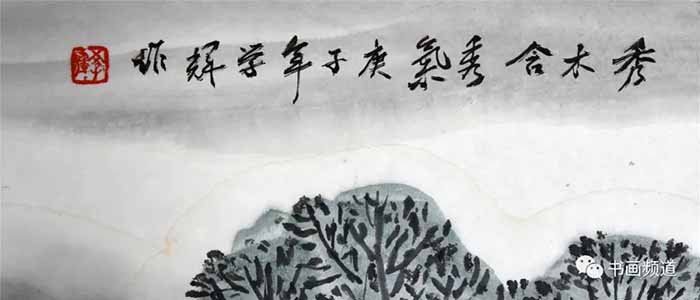 秀木含秀氣庚子年学辉作
书画频道